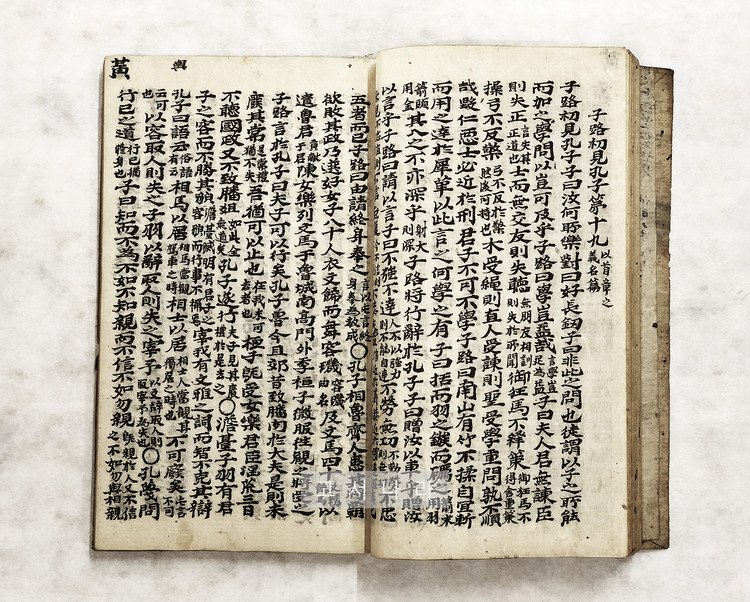 子路初見孔子第十九以首章之義名篇
子路初見孔子子曰汝何所樂對曰好長劍子曰非此之問也徒謂以子之所能
而加之學問以豈可及乎子路曰學豈益哉言學豈足為益子曰夫人君無諫臣
則失正言失其正道也士而無交友則失聽無朋友相訓則失於所聞御狂馬不釋策御狂馬不得舍棄策
操弓不反檠弓不反於檠然後可持也木受繩則直人受諫則聖受學重問孰不順
哉毀仁惡士必近於刑君子不可不學子路曰南山有竹不揉自直斬
而用之達於犀革以此言之何學之有子曰括而羽之鏃而礪之
箭頭用金其入之不亦深乎射大則深子路將行辭於孔子子曰贈汝以車乎贈汝
以言乎子路曰請以言子曰不強不達人不以強力則不能自達不勞無功不勤勞則無功不忠
五者而已子路曰由請終身奉之○孔子相魯齊人患其
欲敗其政乃選好女子八十人衣文飾而舞容璣容璣曲名及文馬四十以
遺魯君貢獻于君陳女樂列文馬于魯城南高門外季桓子微服往觀之將受之
子路言於孔子曰夫子可以行矣孔子曰魯今且郊若致膰於大夫是則未
廢其常是祭禮猶不失吾猶可以止也桓子既受女樂君臣淫荒三日
不聽國政又不致膰俎孔子遂行○澹臺子羽有君
子之容而不勝其貌宰我有文雅之詞而智不充其辯
孔子曰語云俗語有云相馬以居相馬當觀駕車之時相士以居相士人當觀其獨居之時也不可廢矣此言不可
也云可以容取人則失之子羽以辭取人則失之宰予○孔蔑問
行己之道行已猶修身也子曰知而不為不如不知親而不信不如勿親既親於人人不信之不如勿與相親
與
黃